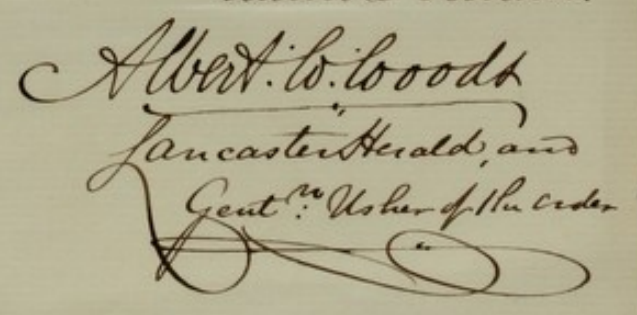 Albert. W. Woods
Lancaster Herald, and
Gentn: Usher of the order